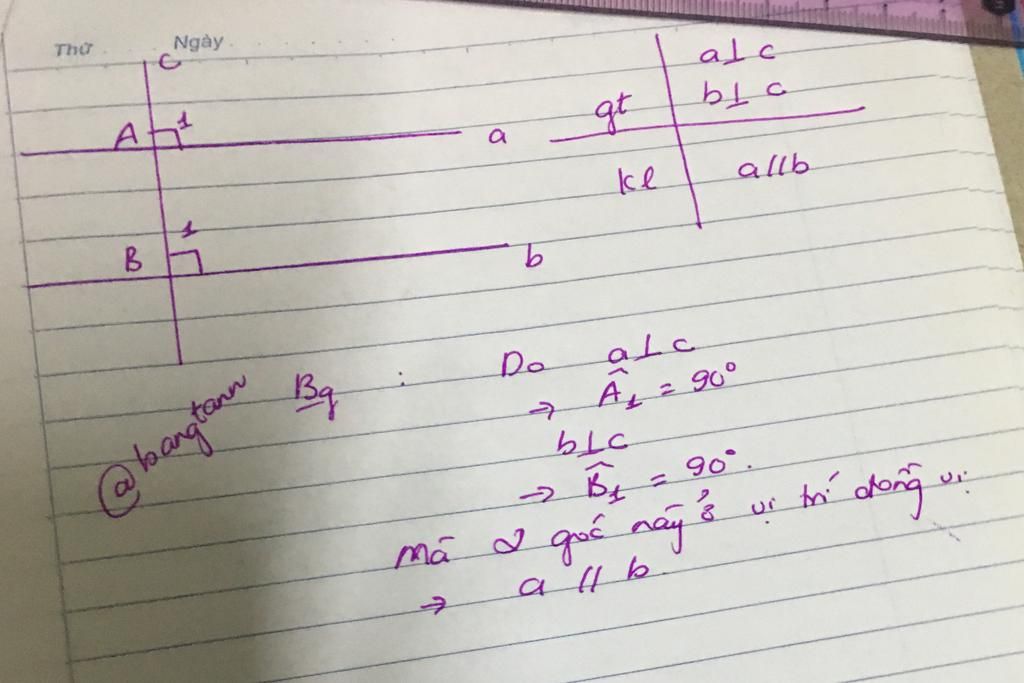 Thứ Ngày
c
A 1 a
B 1 b
gt a⊥c
b⊥c
kl a//b
@bangtann
Bg : Do a⊥c
→ Â₁ = 90°
b⊥c
→ B̂₁ = 90°.
mà 2 góc này ở vị trí đồng vị
→ a // b